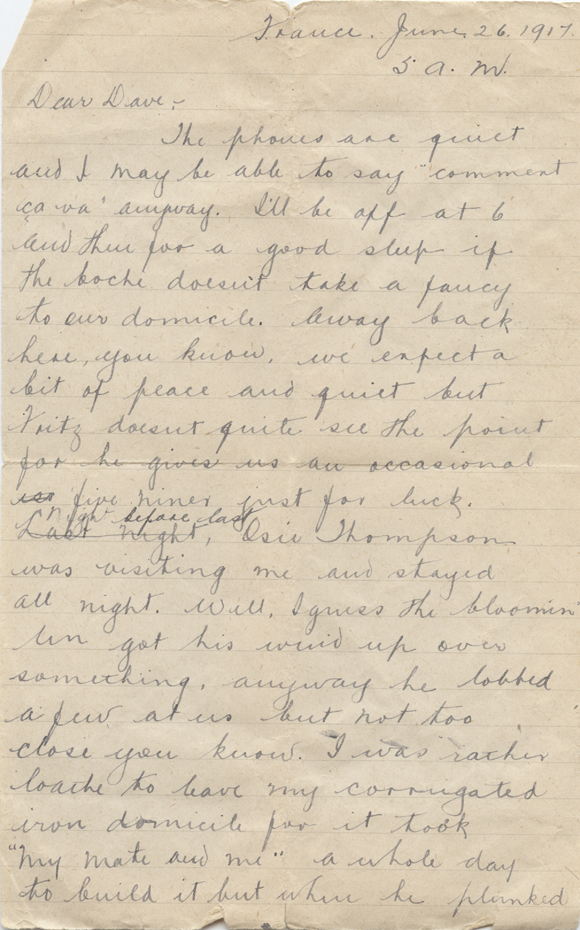 France. June 26. 1917.
5 A. M.
Dear Dave,-
The phones are quiet
and I may be able to say "comment
ça va" anyway. I'll be off at 6
and then for a good sleep if
the boche doesn't take a fancy
to our domicile. Away back
here, you know, we expect a
bit of peace and quiet but
Fritz doesnt quite see the point
for he gives us an occasional
five niner just for luck.
Night before last
Last night, Osie Thompson
was visiting me and stayed
all night. Well, I guess the bloomin'
Un got his wind up over
something, anyway he lobbed
a few at us but not too
close you know. I was rather
loathe to leave my corrugated
iron domicile for it took
"my mate and me" a whole day
to build it but when he plunked